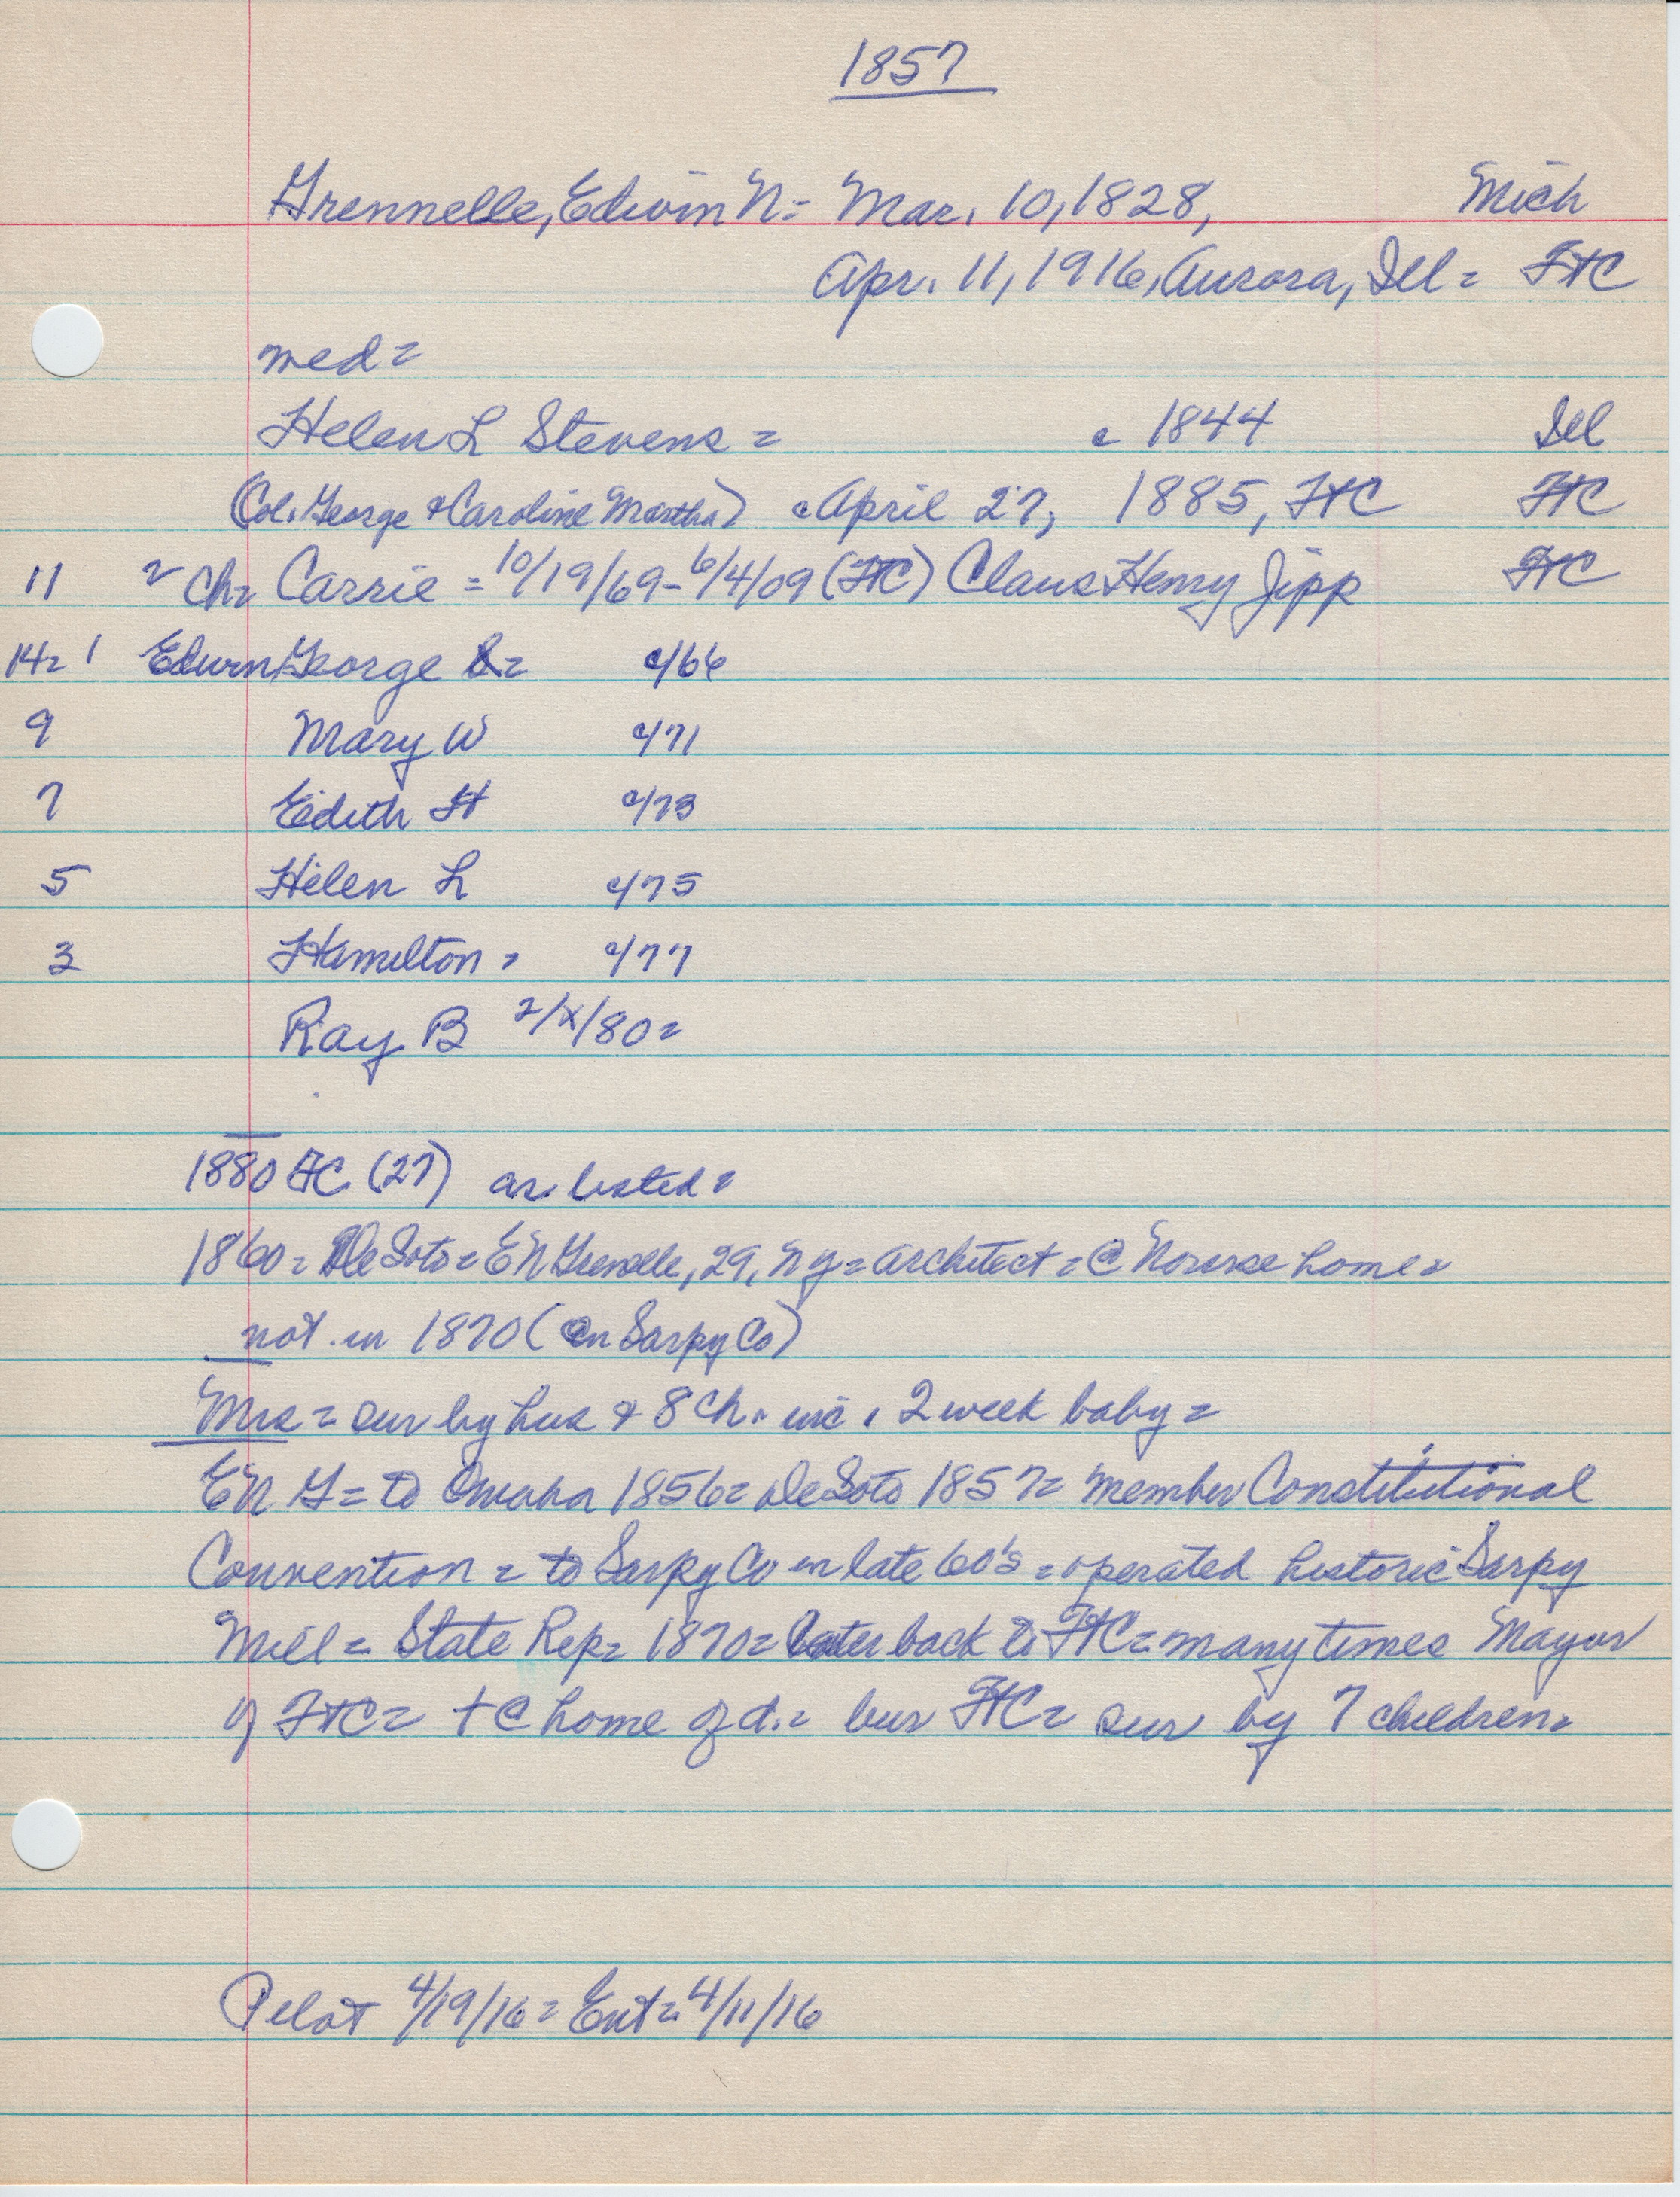 1857
Grennelle, Edwin N = Mar. 10, 1828, Mich
Apr. 11, 1916, Aurora, Ill = FtC
med =
Helen L Stevens = c 1844 Ill
(Col. George & Caroline Martha) c April 27, 1885, FtC FtC
11 2 Ch = Carrie = 10/19/69 - 6/4/09 (FtC) Claus Henry Jipp FtC
14 = 1 Edwin George = c/66
9 Mary W c/71
7 Edith H c/73
5 Helen L c/75
3 Hamilton = c/77
Ray B 2/x/80 =
1880 FC (27) as listed =
1860 = DeSoto = E N Grenelle, 29, NY = architect = @ home =
not in 1870 (in Sarpy Co)
Mrs = sur by hus & 8 ch. inc. 2 week baby =
E N G = to Omaha 1856 = DeSoto 1857 = member Constitutional
Convention = to Sarpy Co in late 60's = operated historic Sarpy
Mill = State Rep = 1870 = later back to FtC = many times Mayor
of FtC = + @ home of d. = bur FtC = sur by 7 children =
Pilot 4/19/16 = Ent = 4/11/16